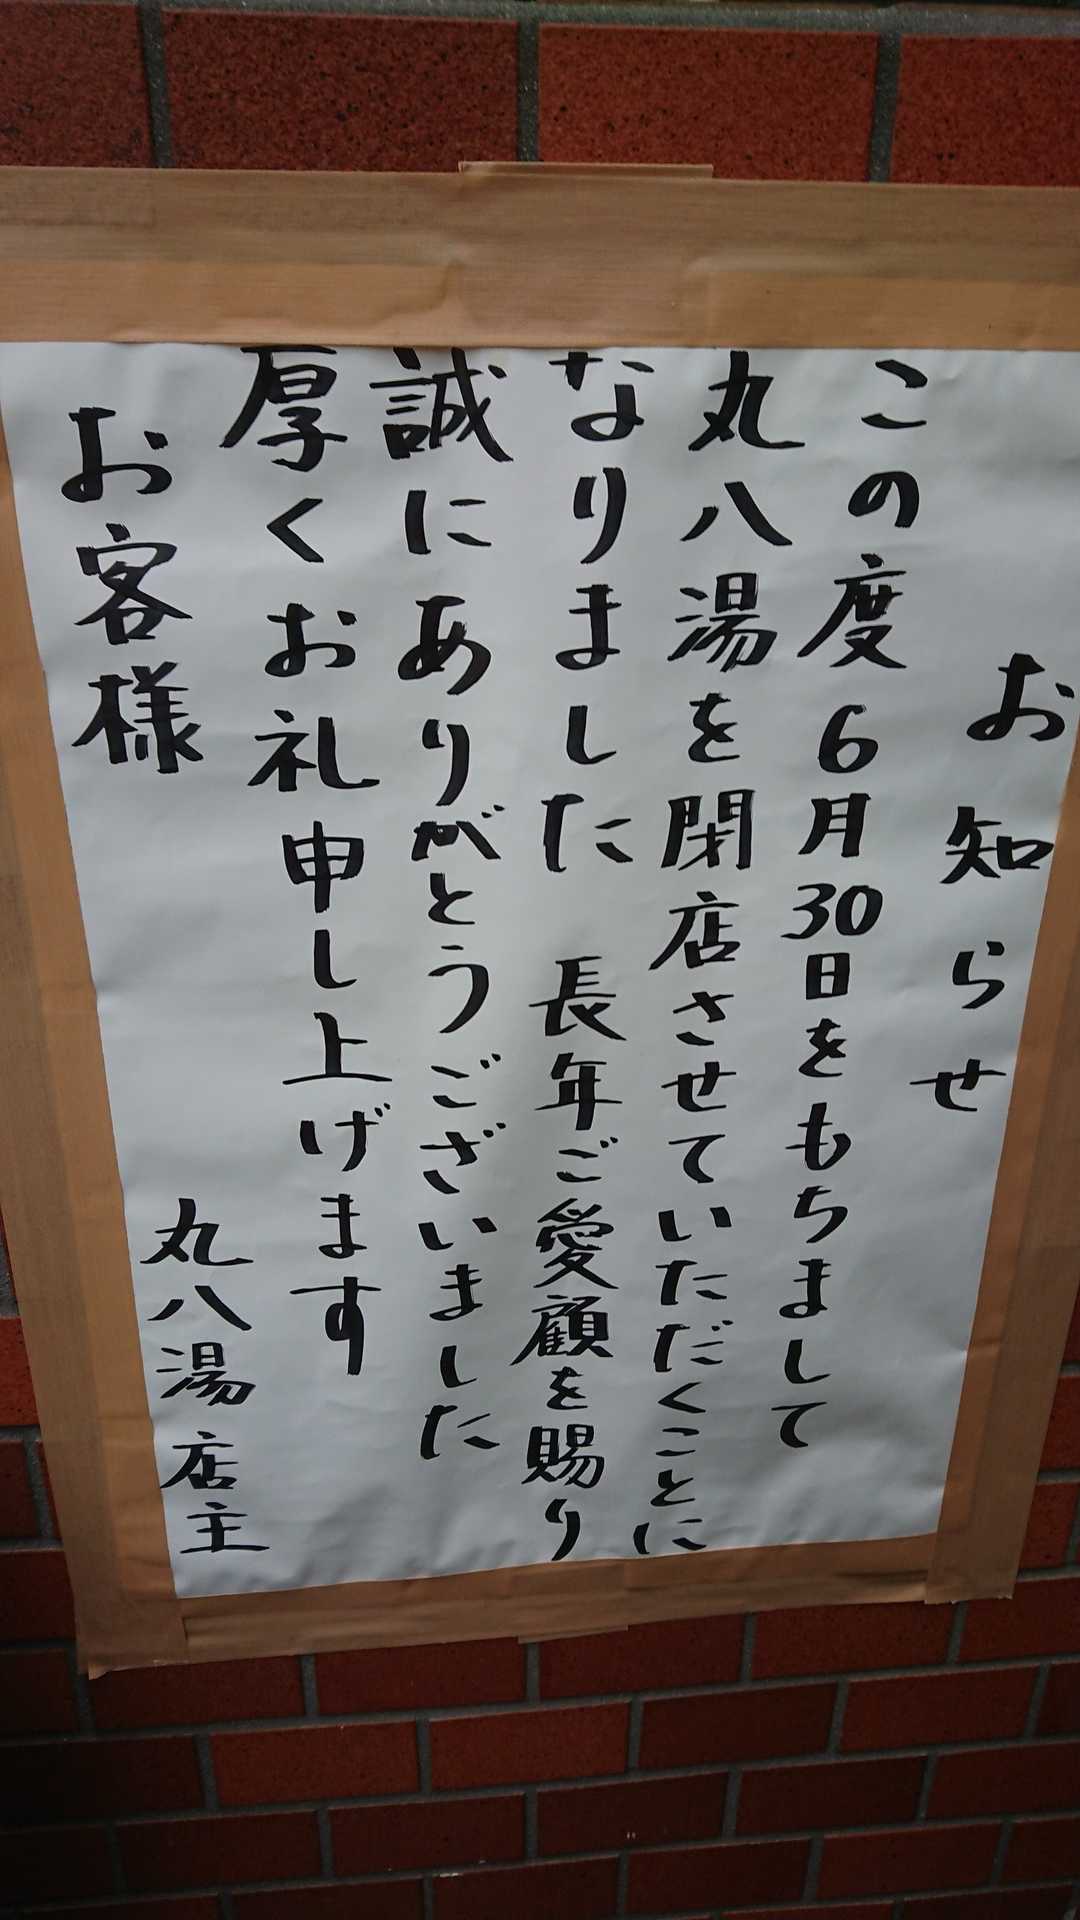 お知らせ
この度6月30日をもちまして
丸八湯を閉店させていただくことに
なりました　長年ご愛顧を賜り
誠にありがとうございました
厚くお礼申し上げます
お客様
丸八湯店主